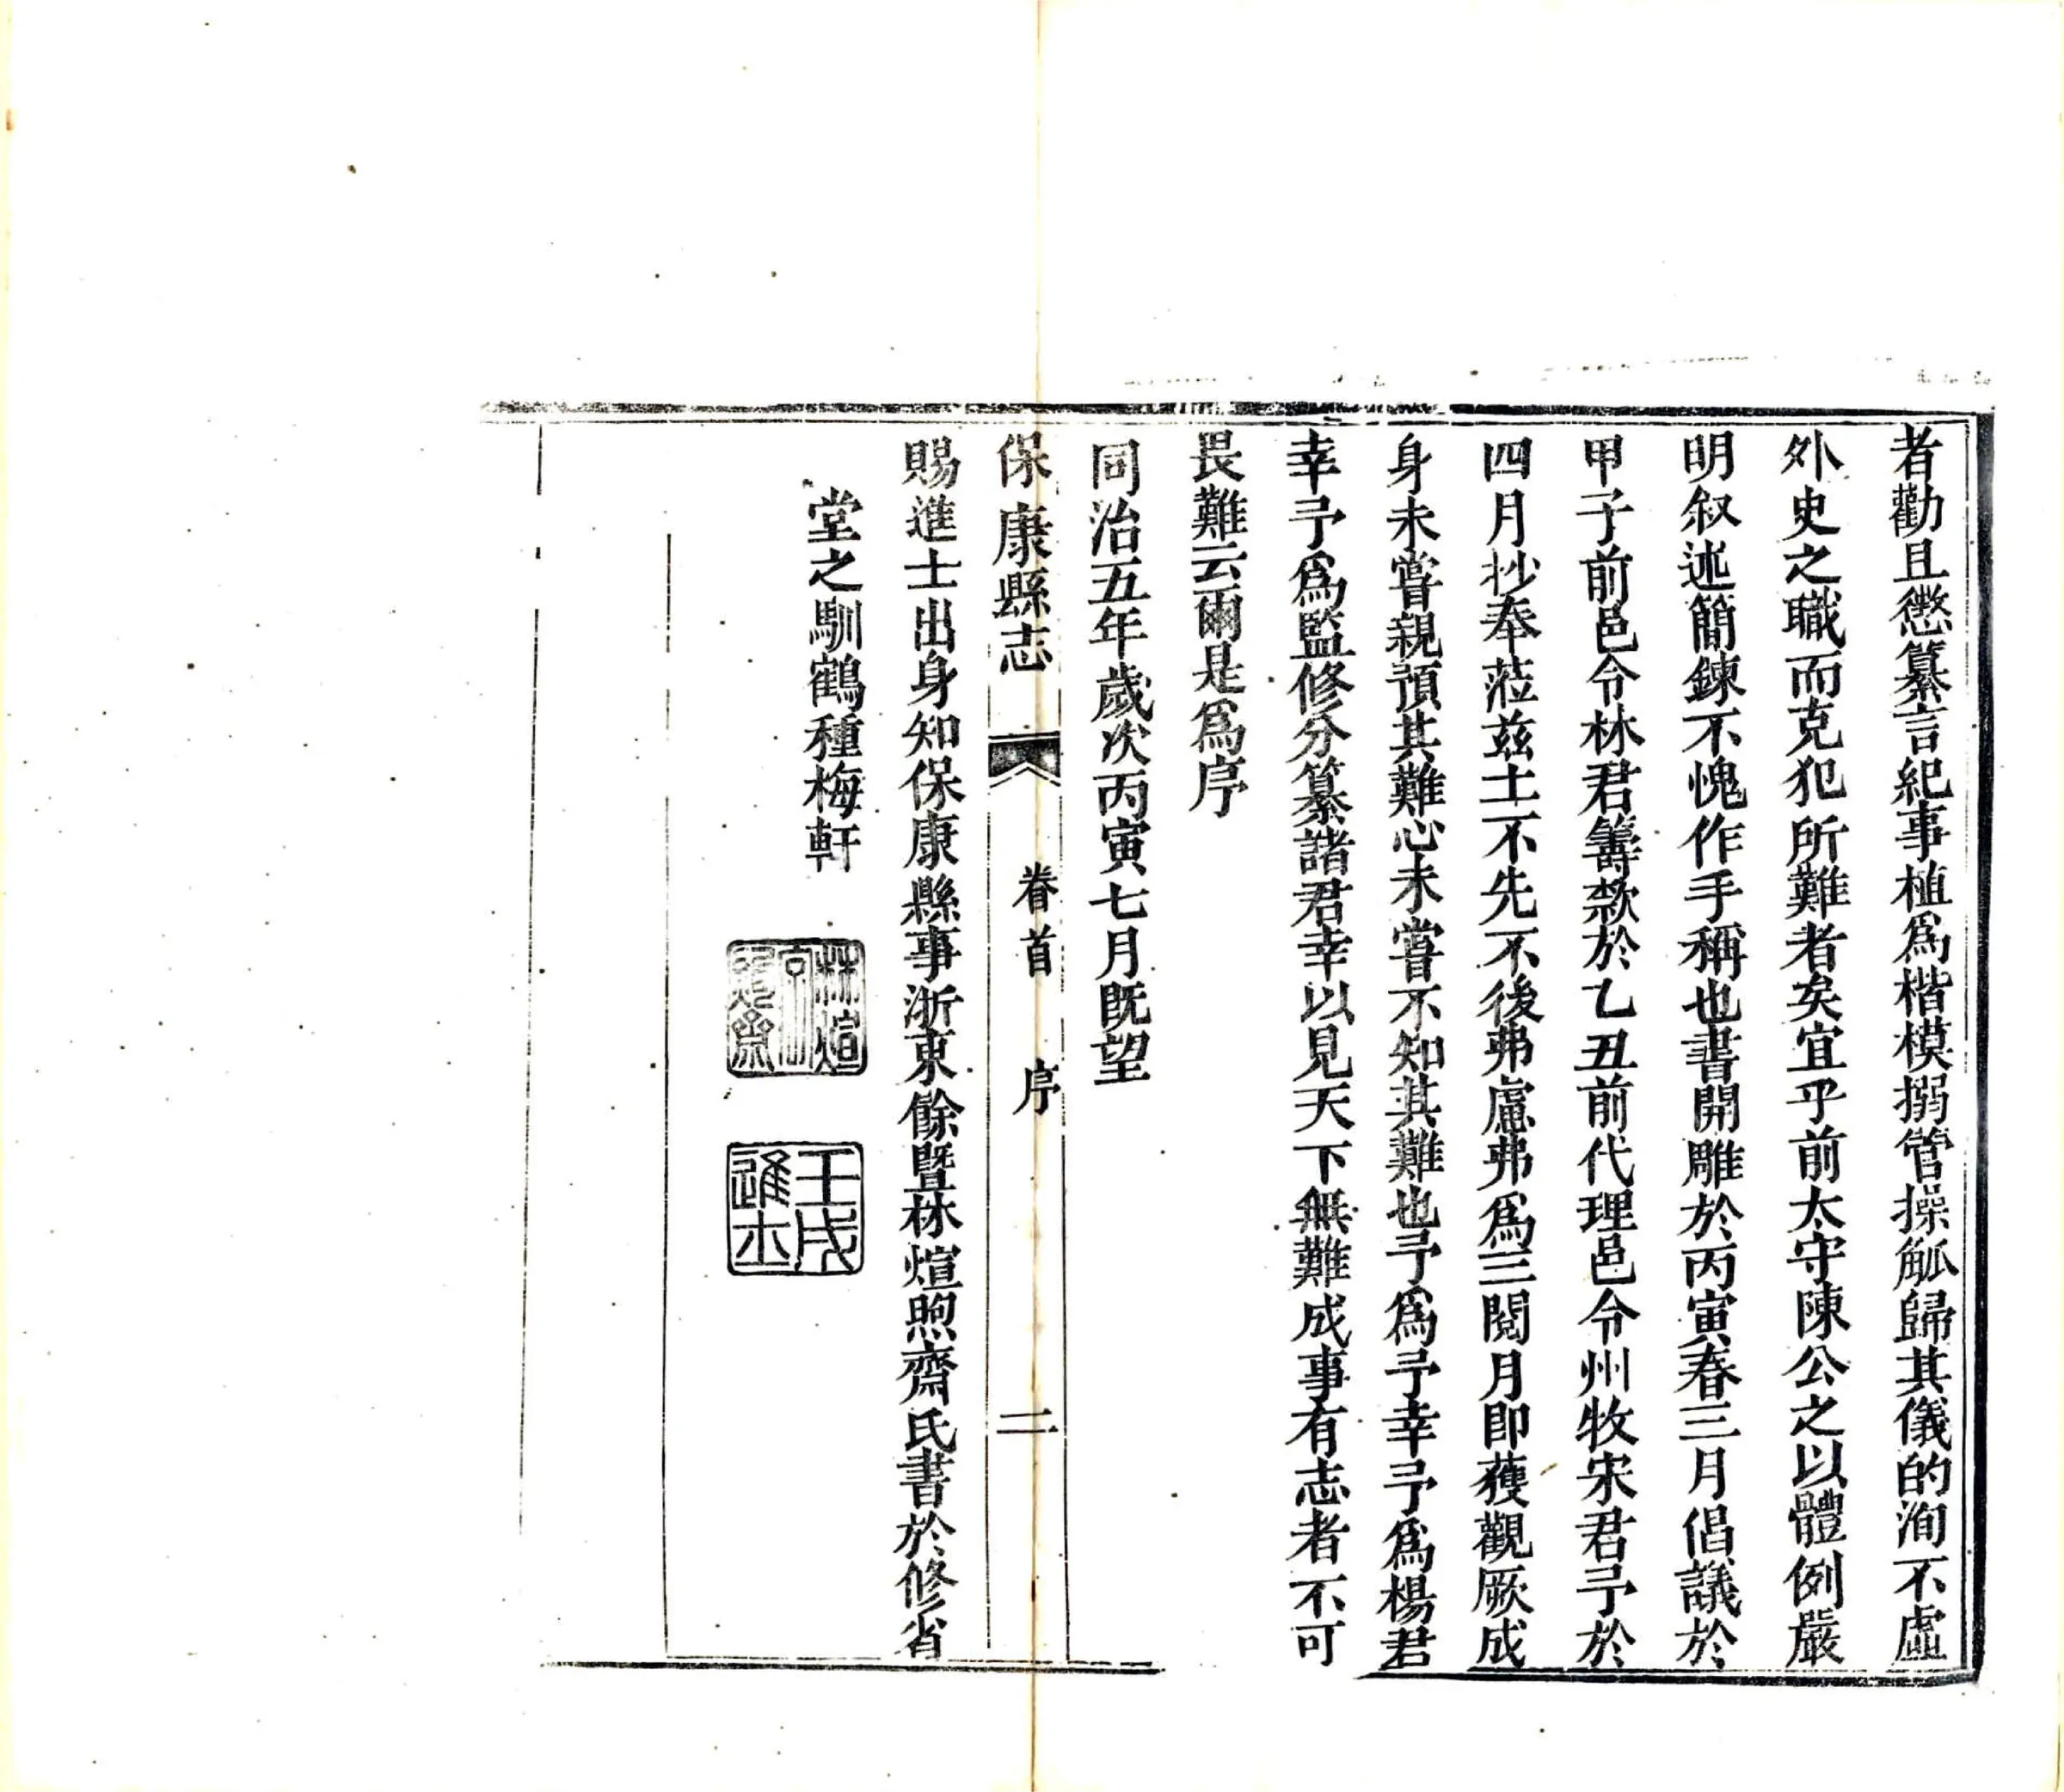 者勸且懲纂言紀事植爲楷模搦管操觚歸其儀的洵不虛
外史之職而克犯所難者矣宜乎前太守陳公之以體例嚴
明叙述簡鍊不愧作手稱也書開雕於丙寅春三月倡議於
甲子前邑令林君籌欵於乙丑前代理邑令州牧宋君予於
四月抄奉蒞兹土不先不後弗慮弗爲三閱月即獲觀厥成
身未嘗親預其難心未嘗不知其難也予爲予幸予爲楊君
幸予爲監修分纂諸君幸以見天下無難成事有志者不可
畏難云爾是爲序
同治五年歲次丙寅七月既望
保康縣志 卷首 序 二
賜進士出身知保康縣事浙東餘暨林煊煦齋氏書於修省
堂之馴鶴種梅軒
林煊
字
煦齋
壬戌
進士